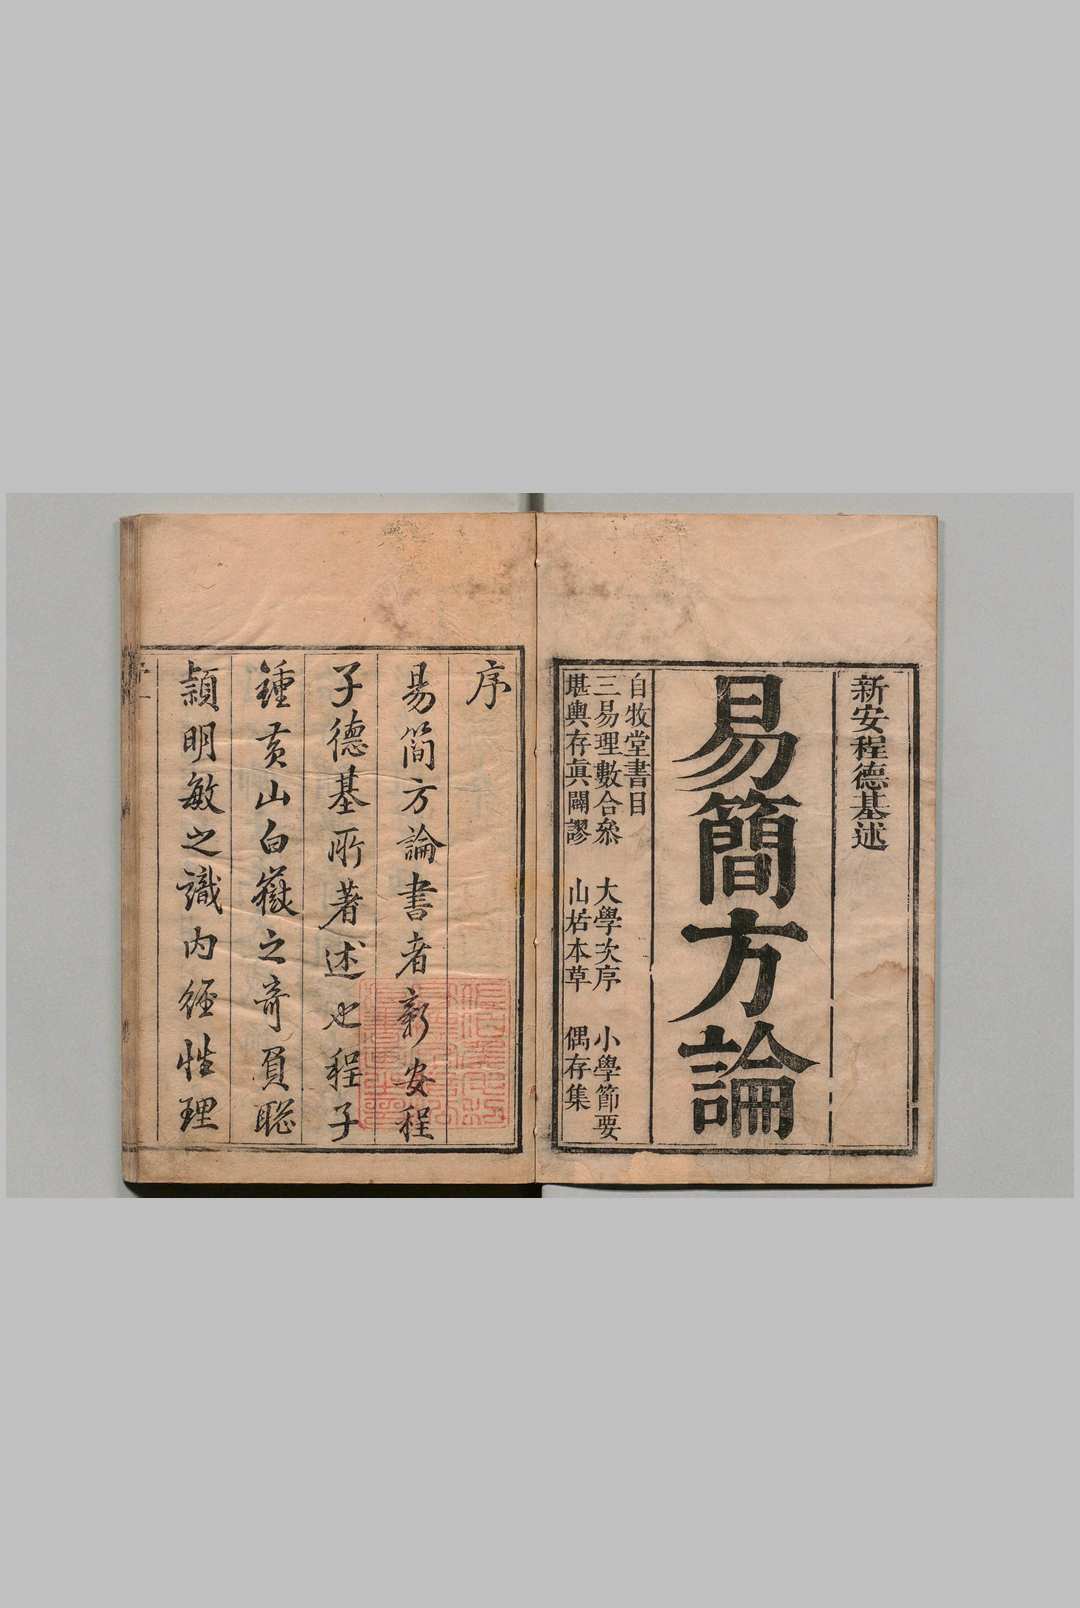 新安程德基述
易簡方論
自牧堂書目
三易理數合叅　大學次序　小學節要
堪輿存眞闢謬　山居本草　偶存集
序
易簡方論書者新安程
子德基所著述也程子
鍾黃山白嶽之奇負聡
頴明敏之識內經性理